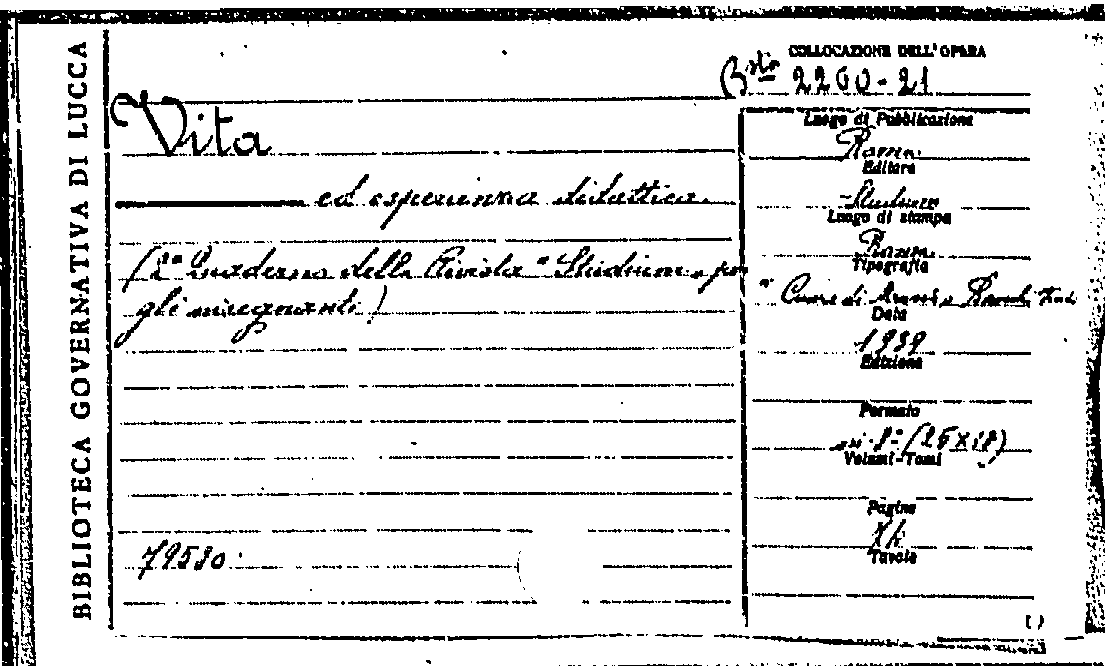 BIBLIOTECA GOVERNATIVA DI LUCCA
COLLOCAZIONE DELL'OPERA
Bsta 2260-21
Vita
ed esperienza didattica.
(2° Quaderno della Rivista "Studium" per
gli insegnanti)
79530.
Luogo di Pubblicazione
Roma
Editore
Studium
Luogo di stampa
Roma
Tipografia
" Cuore di
Data
1939
Edizione
Formato
in-8° (25x18)
Volumi-Tomi
Pagine
Tavole
( )